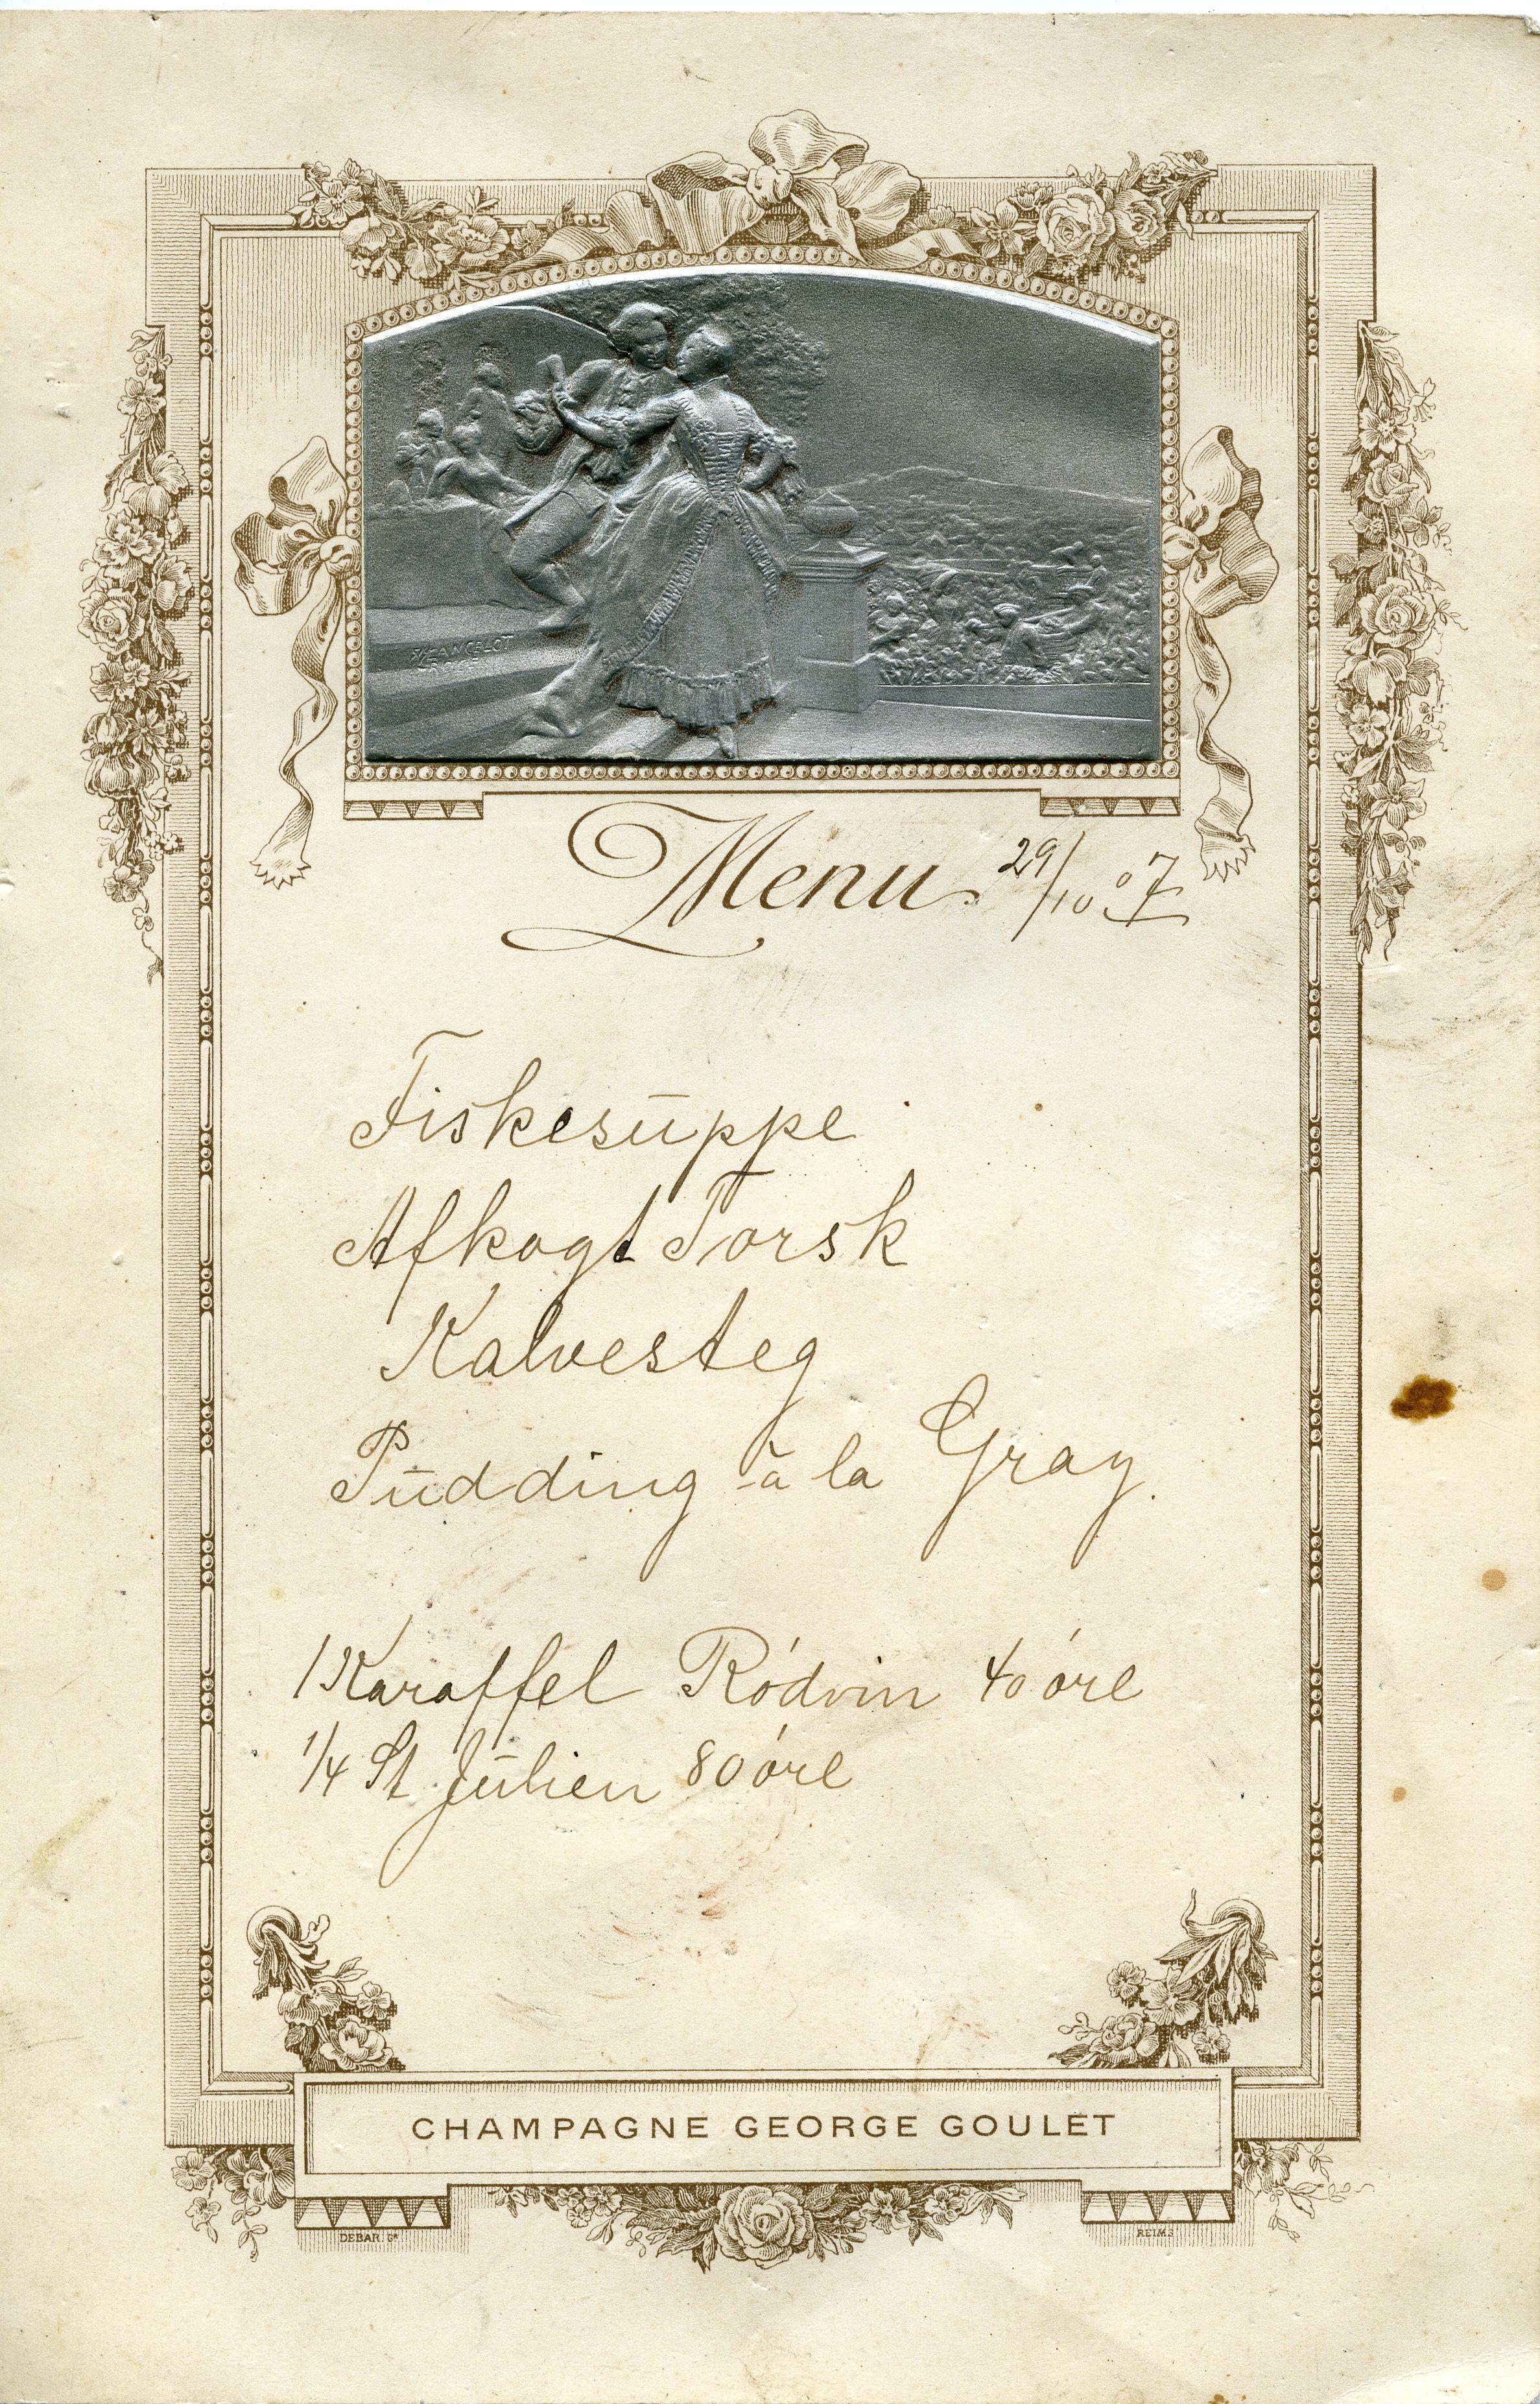 Menu 29/10 07
Fiskesuppe
Afkogt Torsk
Kalvesteg
Pudding à la Gray.
1 Karaffel Ródvin 40 óre
1/4 St. Julien 80 óre
CHAMPAGNE GEORGE GOULET
DEBAR. Gr.
REIMS